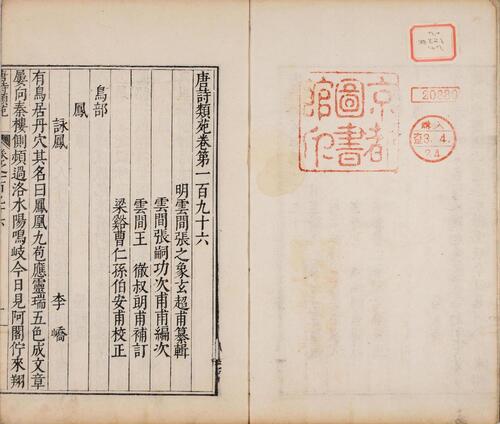 唐詩類苑卷第一百九十六
明雲間張之象玄超甫纂輯
雲間張嗣功次甫甫編次
雲間王徹叔朗甫補訂
梁谿曹仁孫伯安甫校正
鳥部
鳳
詠鳳
李嶠
有鳥居丹穴其名曰鳳凰九苞應靈瑞五色成文章
屢向秦樓側頻過洛水陽鳴岐今日見阿閣佇來翔
唐詩類苑
京都
圖書
館印
20880
購入